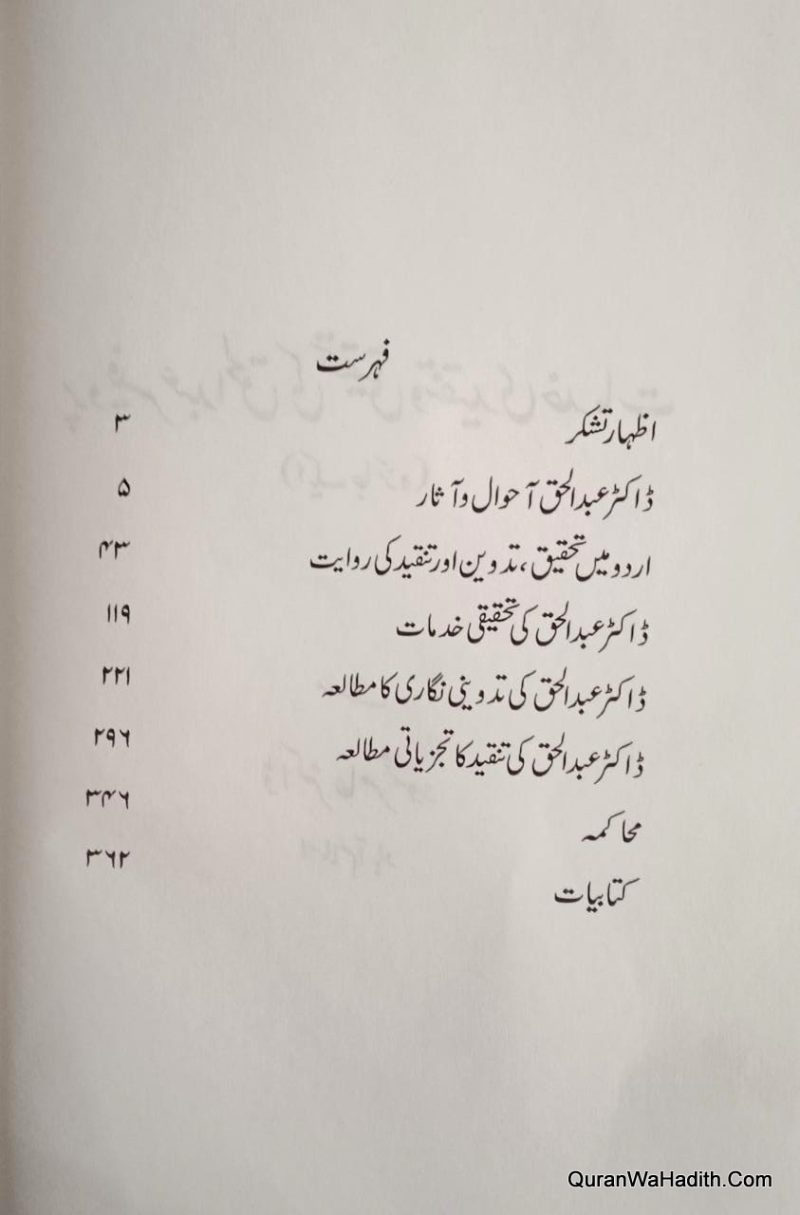 فہرست
اظہار تشکر ۳
ڈاکٹر عبدالحق آحوال و آثار ۵
اردو میں تحقیق، تدوین اور تنقید کی روایت ۴۳
ڈاکٹر عبدالحق کی تحقیقی خدمات ۱۱۹
ڈاکٹر عبدالحق کی تدوینی نگاری کا مطالعہ ۲۲۱
ڈاکٹر عبدالحق کی تنقید کا تجزیاتی مطالعہ ۲۹۶
محاکمہ ۳۴۶
کتابیات ۳۶۲
QuranWaHadith.Com